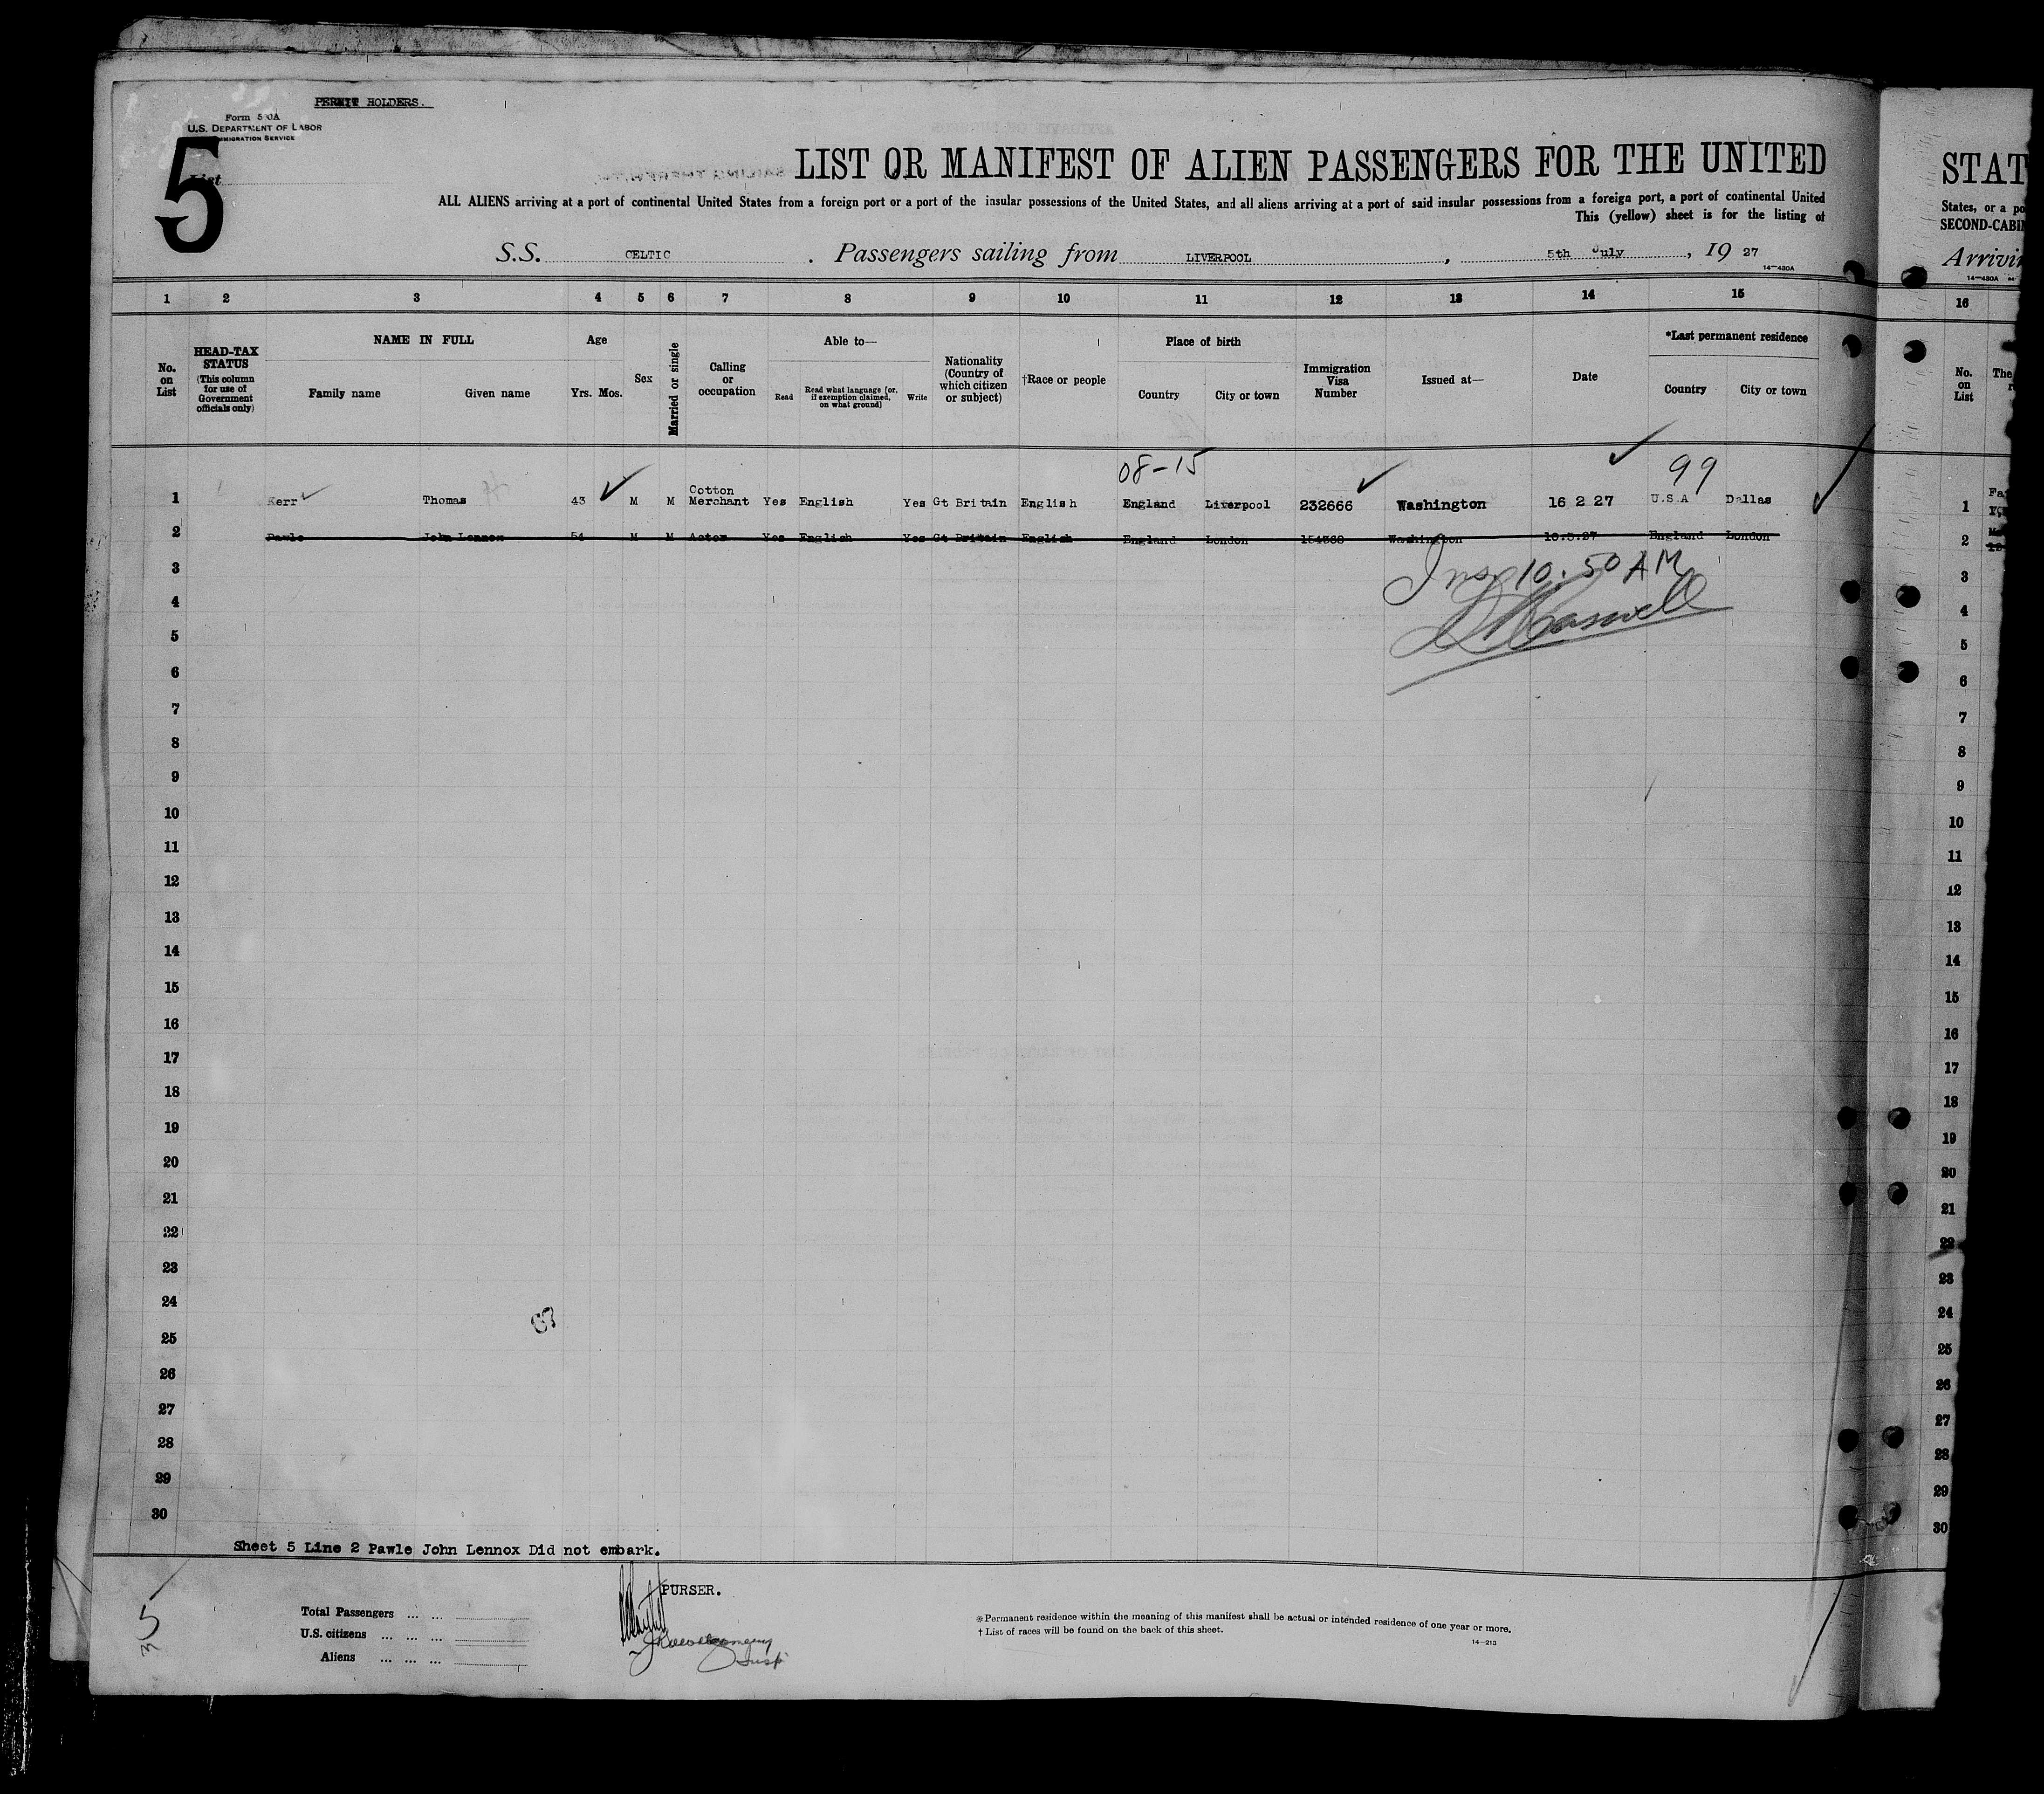 PERMIT HOLDERS.
Form 500A
U.S. DEPARTMENT OF LABOR
IMMIGRATION SERVICE
5
List
LIST OR MANIFEST OF ALIEN PASSENGERS FOR THE UNITED
ALL ALIENS arriving at a port of continental United States from a foreign port or a port of the insular possessions of the United States, and all aliens arriving at a port of said insular possessions from a foreign port, a port of continental United
This (yellow) sheet is for the listing of
S.S. CELTIC . Passengers sailing from LIVERPOOL , 5th July , 19 27
14—480A
1 2 3 4 5 6 7 8 9 10 11 12 13 14 15
No. on List
HEAD-TAX STATUS (This column for use of Government officials only)
NAME IN FULL
Family name Given name
Age
Yrs. Mos.
Sex
Married or single
Calling or occupation
Able to—
Read
Read what language [or, if exemption claimed, on what ground]
Write
Nationality (Country of which citizen or subject)
†Race or people
Place of birth
Country City or town
Immigration Visa Number
Issued at—
Date
*Last permanent residence
Country City or town
08-15 99
1 Kerr Thomas 43 M M Cotton Merchant Yes English Yes Gt Britain English England Liverpool 232666 Washington 16 2 27 U.S.A Dallas
2 Pawle John Lennox 54 M M Actor Yes English Yes Gt Britain English England London 154368 Washington 10.5.27 England London
10.50 AM
3
4
5
6
7
8
9
10
11
12
13
14
15
16
17
18
19
20
21
22
23
24
25
26
27
28
29
30
Sheet 5 Line 2 Pawle John Lennox Did not embark.
PURSER.
5
Total Passengers ... ...
U.S. citizens ... ... ...
Aliens ... ... ...
Insp
*Permanent residence within the meaning of this manifest shall be actual or intended residence of one year or more.
† List of races will be found on the back of this sheet.
14—213
STAT
States, or a po
SECOND-CABI
Arrivi
14—480A
16
No. on List
The
1
2
3
4
5
6
7
8
9
10
11
12
13
14
15
16
17
18
19
20
21
22
23
24
25
26
27
28
29
30